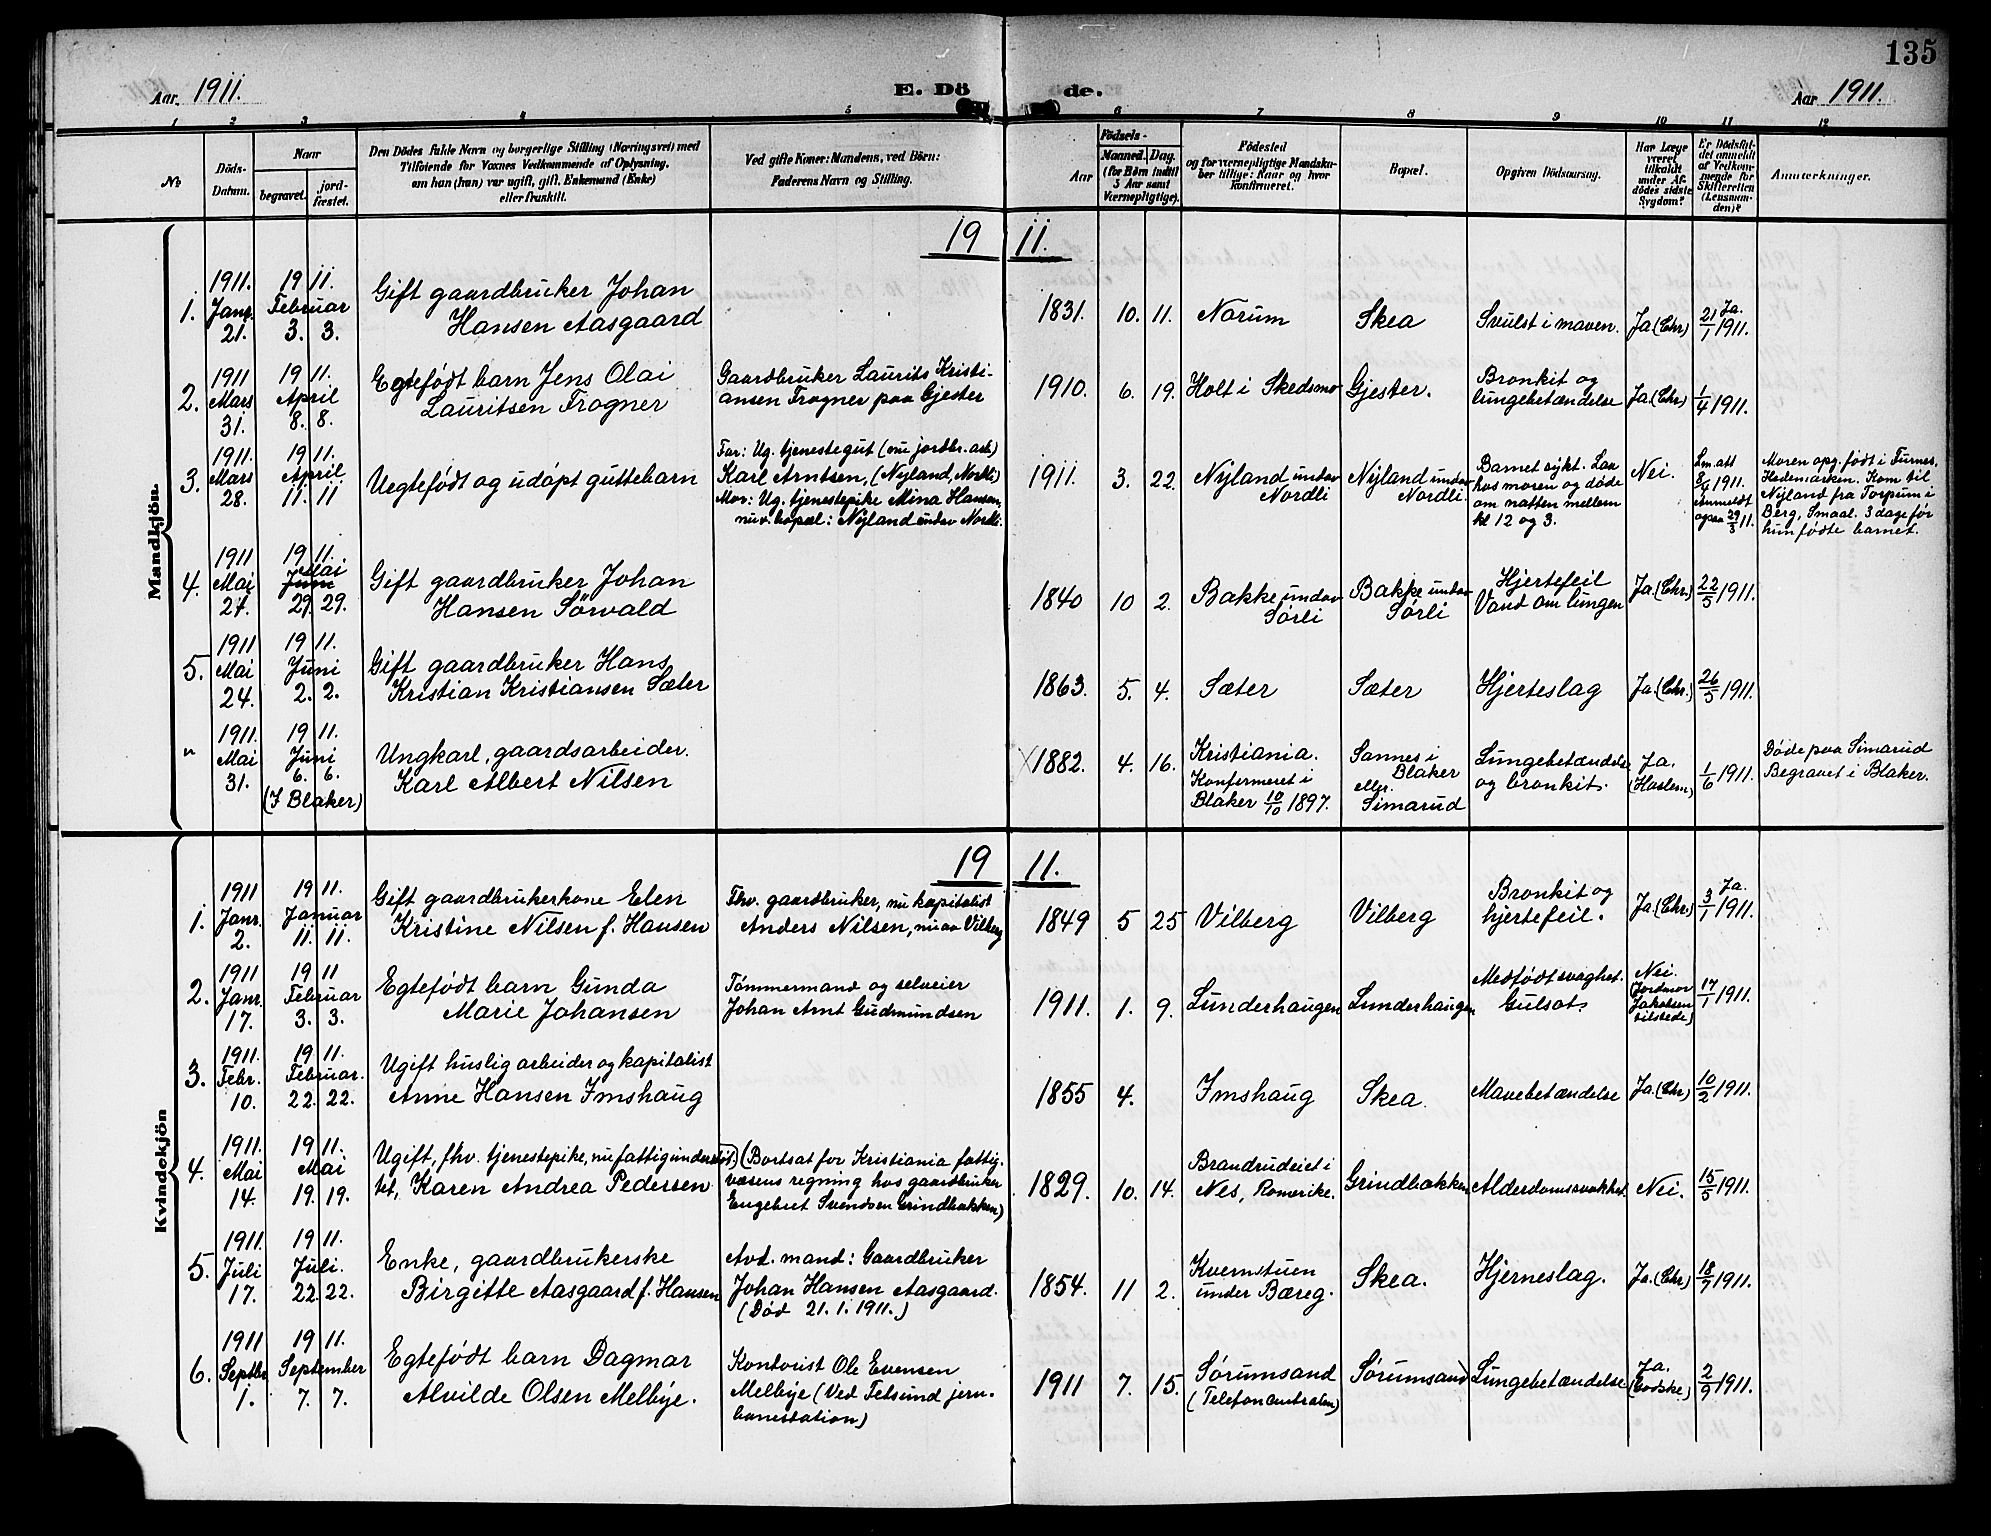 135
Aar 1911.
E. Dö
de.
Aar 1911.
1 2 3 4 5 6 7 8 9 10 11 12
No
Döds-
Datum.
Naar
begravet.
jord-
fæstet.
Den Dödes fulde Navn og borgerlige Stilling (Næringsvei) med
Tilföiende for Voxnes Vedkommende af Oplysning,
om han (hun) var ugift, gift, Enkemand (Enke)
eller fraskilt.
Ved gifte Koner: Mandens, ved Börn:
Faderens Navn og Stilling.
Födsels-
Aar
Maaned. Dag.
(for Børn indtil
3 Aar samt
Værnepligtige).
Födested
og for værnepligtige Mandska-
ber tillige: Naar og hvor
konfirmeret.
Bopæl.
Opgiven Dödsaarsag.
Har Læge
været
tilkaldt
under Af-
dödes sidste
Sygdom?
Er Dödsfal-
det anmeldt
af Vedkom-
mende for
Skifteretten
(Lensman-
den)?
Anmærkninger.
Mandkjön.
19 11.
1.
1911.
Janr.
21.
19 11.
Februar
3. 3.
Gift gaardbruker Johan
Hansen Aasgaard
1831. 10. 11. Norum
Skea
Svulst i maven.
Ja (Chr)
Ja.
21/1 1911.
2.
1911
Mars
31.
19 11.
April
8. 8.
Egtefødt barn Jens Olai
Lauritsen Frogner
Gaardbruker Laurits Kristi-
ansen Frogner paa Gjester
1910. 6. 19. Holt i Skedsmo
Gjester.
Bronkit og
lungebetændelse
Ja. (Chr)
1/4 1911.
3.
1911.
Mars
28.
19 11.
April
11. 11
Uegtefødt og udøpt guttebarn
Far: Ug. tjenestegut (nu jordbr. arb)
Karl Arntsen, (Nyland, Nordli)
Mor: Ug. tjenestepike Mina Hansen,
nuv. bopæl: Nyland under Nordli.
1911. 3. 22. Nyland under
Nordli
Nyland under
Nordli.
Barnet sykt. Laa
hos moren og døde
om natten mellem
kl 12 og 3.
Nei.
Lm. att
8/4 1911.
Anmeldt
ogsaa 29/3 11.
Moren opg. født i Furnes,
Hedemarken. Kom til
Nyland fra Torpum i
Berg, Smaal. 3 dage før
hun fødte barnet.
4.
1911
Mai
27.
19 11.
Mai
Juni
29. 29.
Gift gaardbruker Johan
Hansen Sørvald
1840 10 2. Bakke under
Sørli
Bakke under
Sørli
Hjertefeil
Vand om lungen
Ja. (Chr.)
22/5 1911.
5.
1911
Mai
24.
19 11.
Juni
2. 2.
Gift gaardbruker Hans
Kristian Kristiansen Sæter
1863. 5. 4. Sæter
Sæter
Hjerteslag
Ja. (Chr.)
26/5 1911.
"
1911.
Mai
31.
19 11.
Juni
6. 6.
(I Blaker)
Ungkarl, gaardsarbeider.
Karl Albert Nilsen
X 1882. 4. 16. Kristiania.
Konfirmeret i
Blaker 10/10 1897.
Sannes i
Blaker
eller
Simarud
Lungebetændelse
og bronkit.
Ja.
(Haslem)
1/6 1911.
Døde paa Simarud
Begravet i Blaker.
Kvindekjön
19 11.
1.
1911
Janr.
2.
19 11.
Januar
11. 11.
Gift gaardbrukerkone Elen
Kristine Nilsen f. Hansen
Fhv. gaardbruker, nu kapitalist
Anders Nilsen, nu av Vilberg
1849 5 25 Vilberg
Vilberg
Bronkit og
hjertefeil.
Ja. (Chr)
Ja.
3/1 1911.
2.
1911
Janr.
17.
19 11
Februar
3. 3.
Egtefødt barn Gunda
Marie Johansen
Tømmermand og selveier
Johan Arnt Gudmundsen
1911. 1. 9. Lunderhaugen
Lunderhaugen
Medfødt svaghet.
Gulsot.
Nei.
(Jordmor
Jakobsen
tilstede)
17/1 1911.
3.
1911.
Febr.
10.
19 11.
Februar.
22. 22.
Ugift huslig arbeider og kapitalist
Anne Hansen Imshaug
1855 4. Imshaug
Skea.
Mavebetændelse
Ja. (Chr)
10/2 1911.
4.
1911.
Mai
14.
19 11.
Mai
19. 19.
Ugift, fhv. tjenestepike, nu fattigunderstøt-
tet, Karen Andrea Pedersen
(Bortsat for Kristiania fattig-
væsens regning hos gaardbruker
Engebret Svendsen Grindbakken)
1829. 10. 14. Brandrudeiet i
Nes, Romerike.
Grindbakken
Alderdomssvakhet.
Nei.
15/5 1911.
5.
1911.
Juli
17.
19 11.
Juli.
22. 22.
Enke, gaardbrukerske
Birgitte Aasgaard f. Hansen
Avd. mand: Gaardbruker
Johan Hansen Aasgaard.
(Død 21. 1. 1911.)
1854. 11 2. Kvernstuen
under Bæreg.
Skea.
Hjerneslag.
Ja. (Chr)
18/7 1911.
6.
1911
Septbr
1.
19 11.
September
7. 7.
Egtefødt barn Dagmar
Alvilde Olsen Melbye.
Kontorist Ole Evensen
Melbye (Ved Fetsund jern-
banestation)
1911 7. 15. Sørumsand
(Telefoncentralen)
Sørumsand
Lungebetændelse
Ja.
(Godske)
2/9 1911.